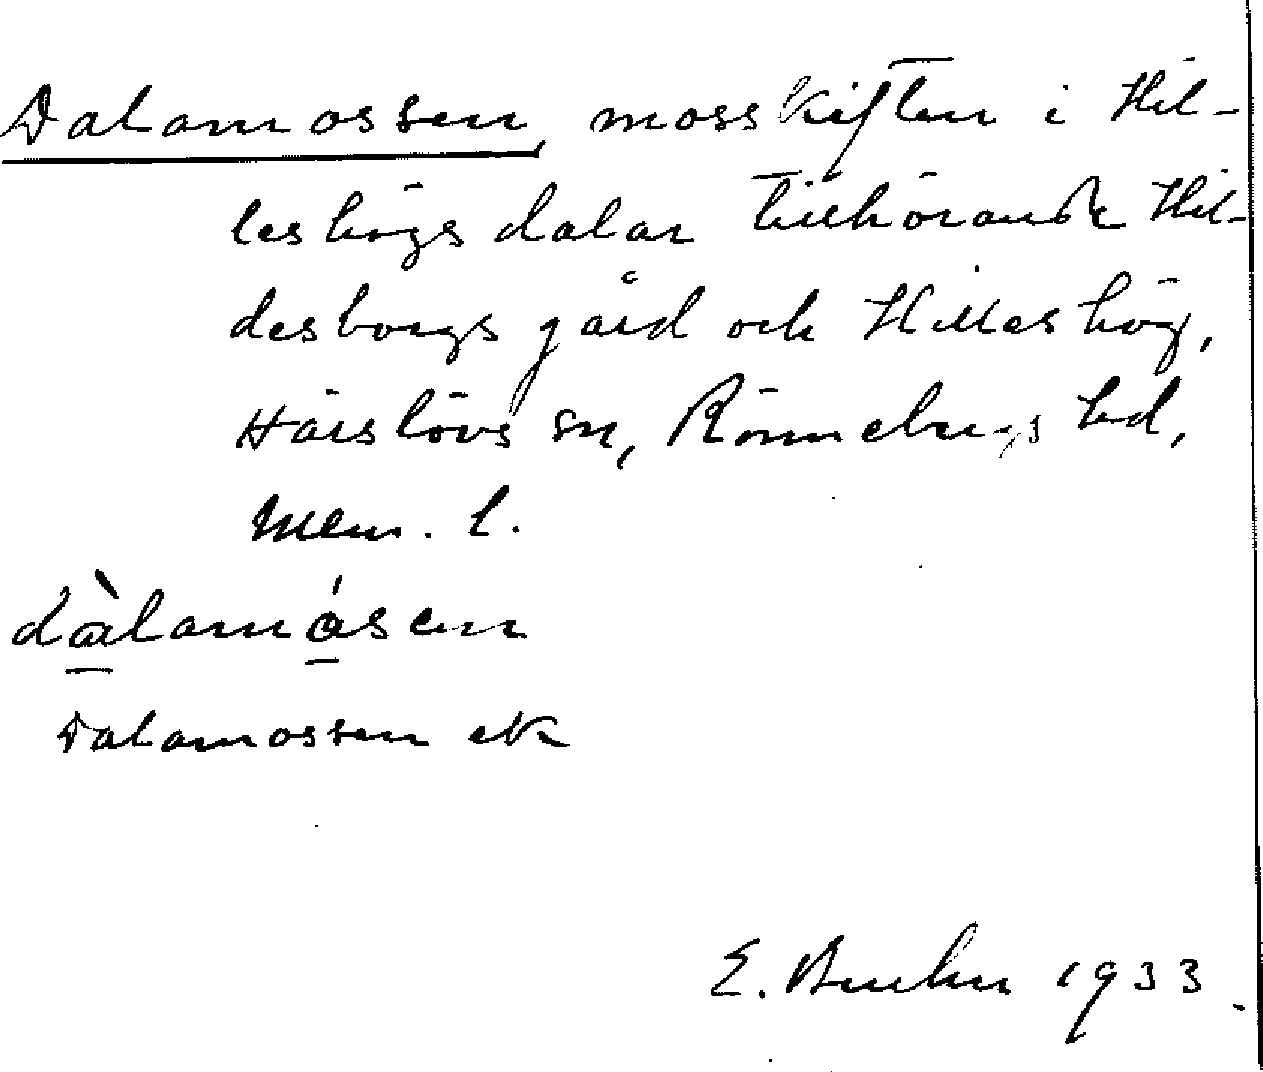 Dalamossen, mosskiften i Hil-
leshögs dalar tillhörande Hil-
desborgs gård och Hilleshög,
Härslövs sn, Rönnebergs hd,
Mem. l.
dàlamåsen
Dalamossen ek
E. 1933